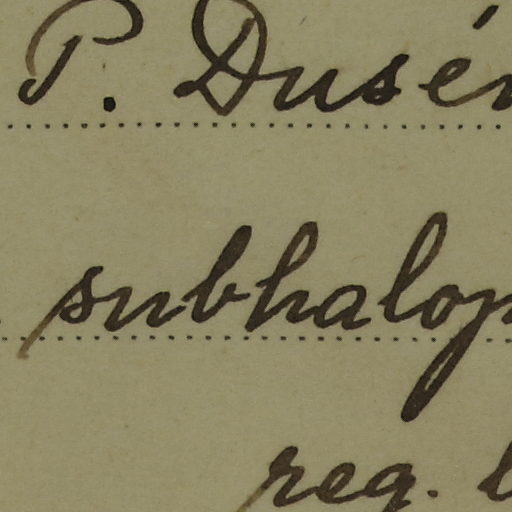 P. Dusén
subhalop
reg.